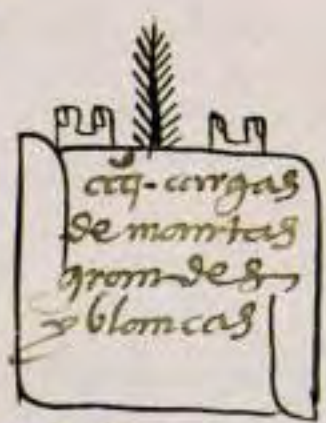 cargas
de mantas
grandes
y blancas